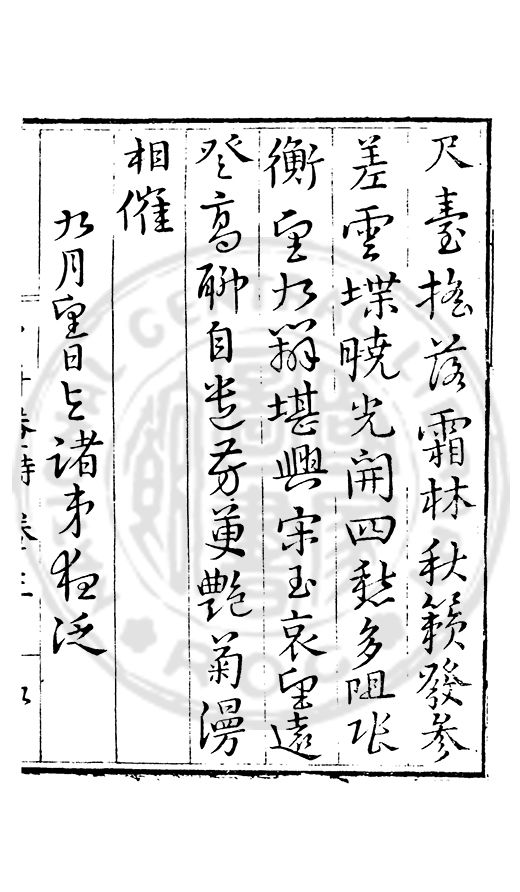 尺臺搖落霜林秋籟發參
差雲堞曉光開四愁多阻張
衡望九辯堪興宋玉哀望遠
登高聊自遣芳萸艷菊漫
相催
九月望日與諸弟夜泛